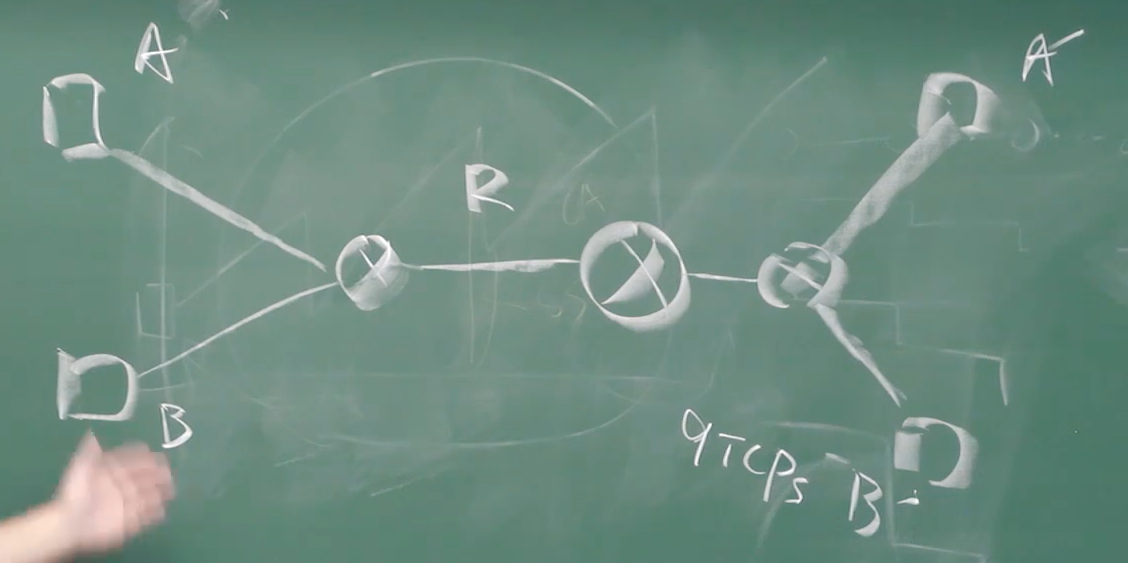 A
A'
R
B
9TCPs
B'